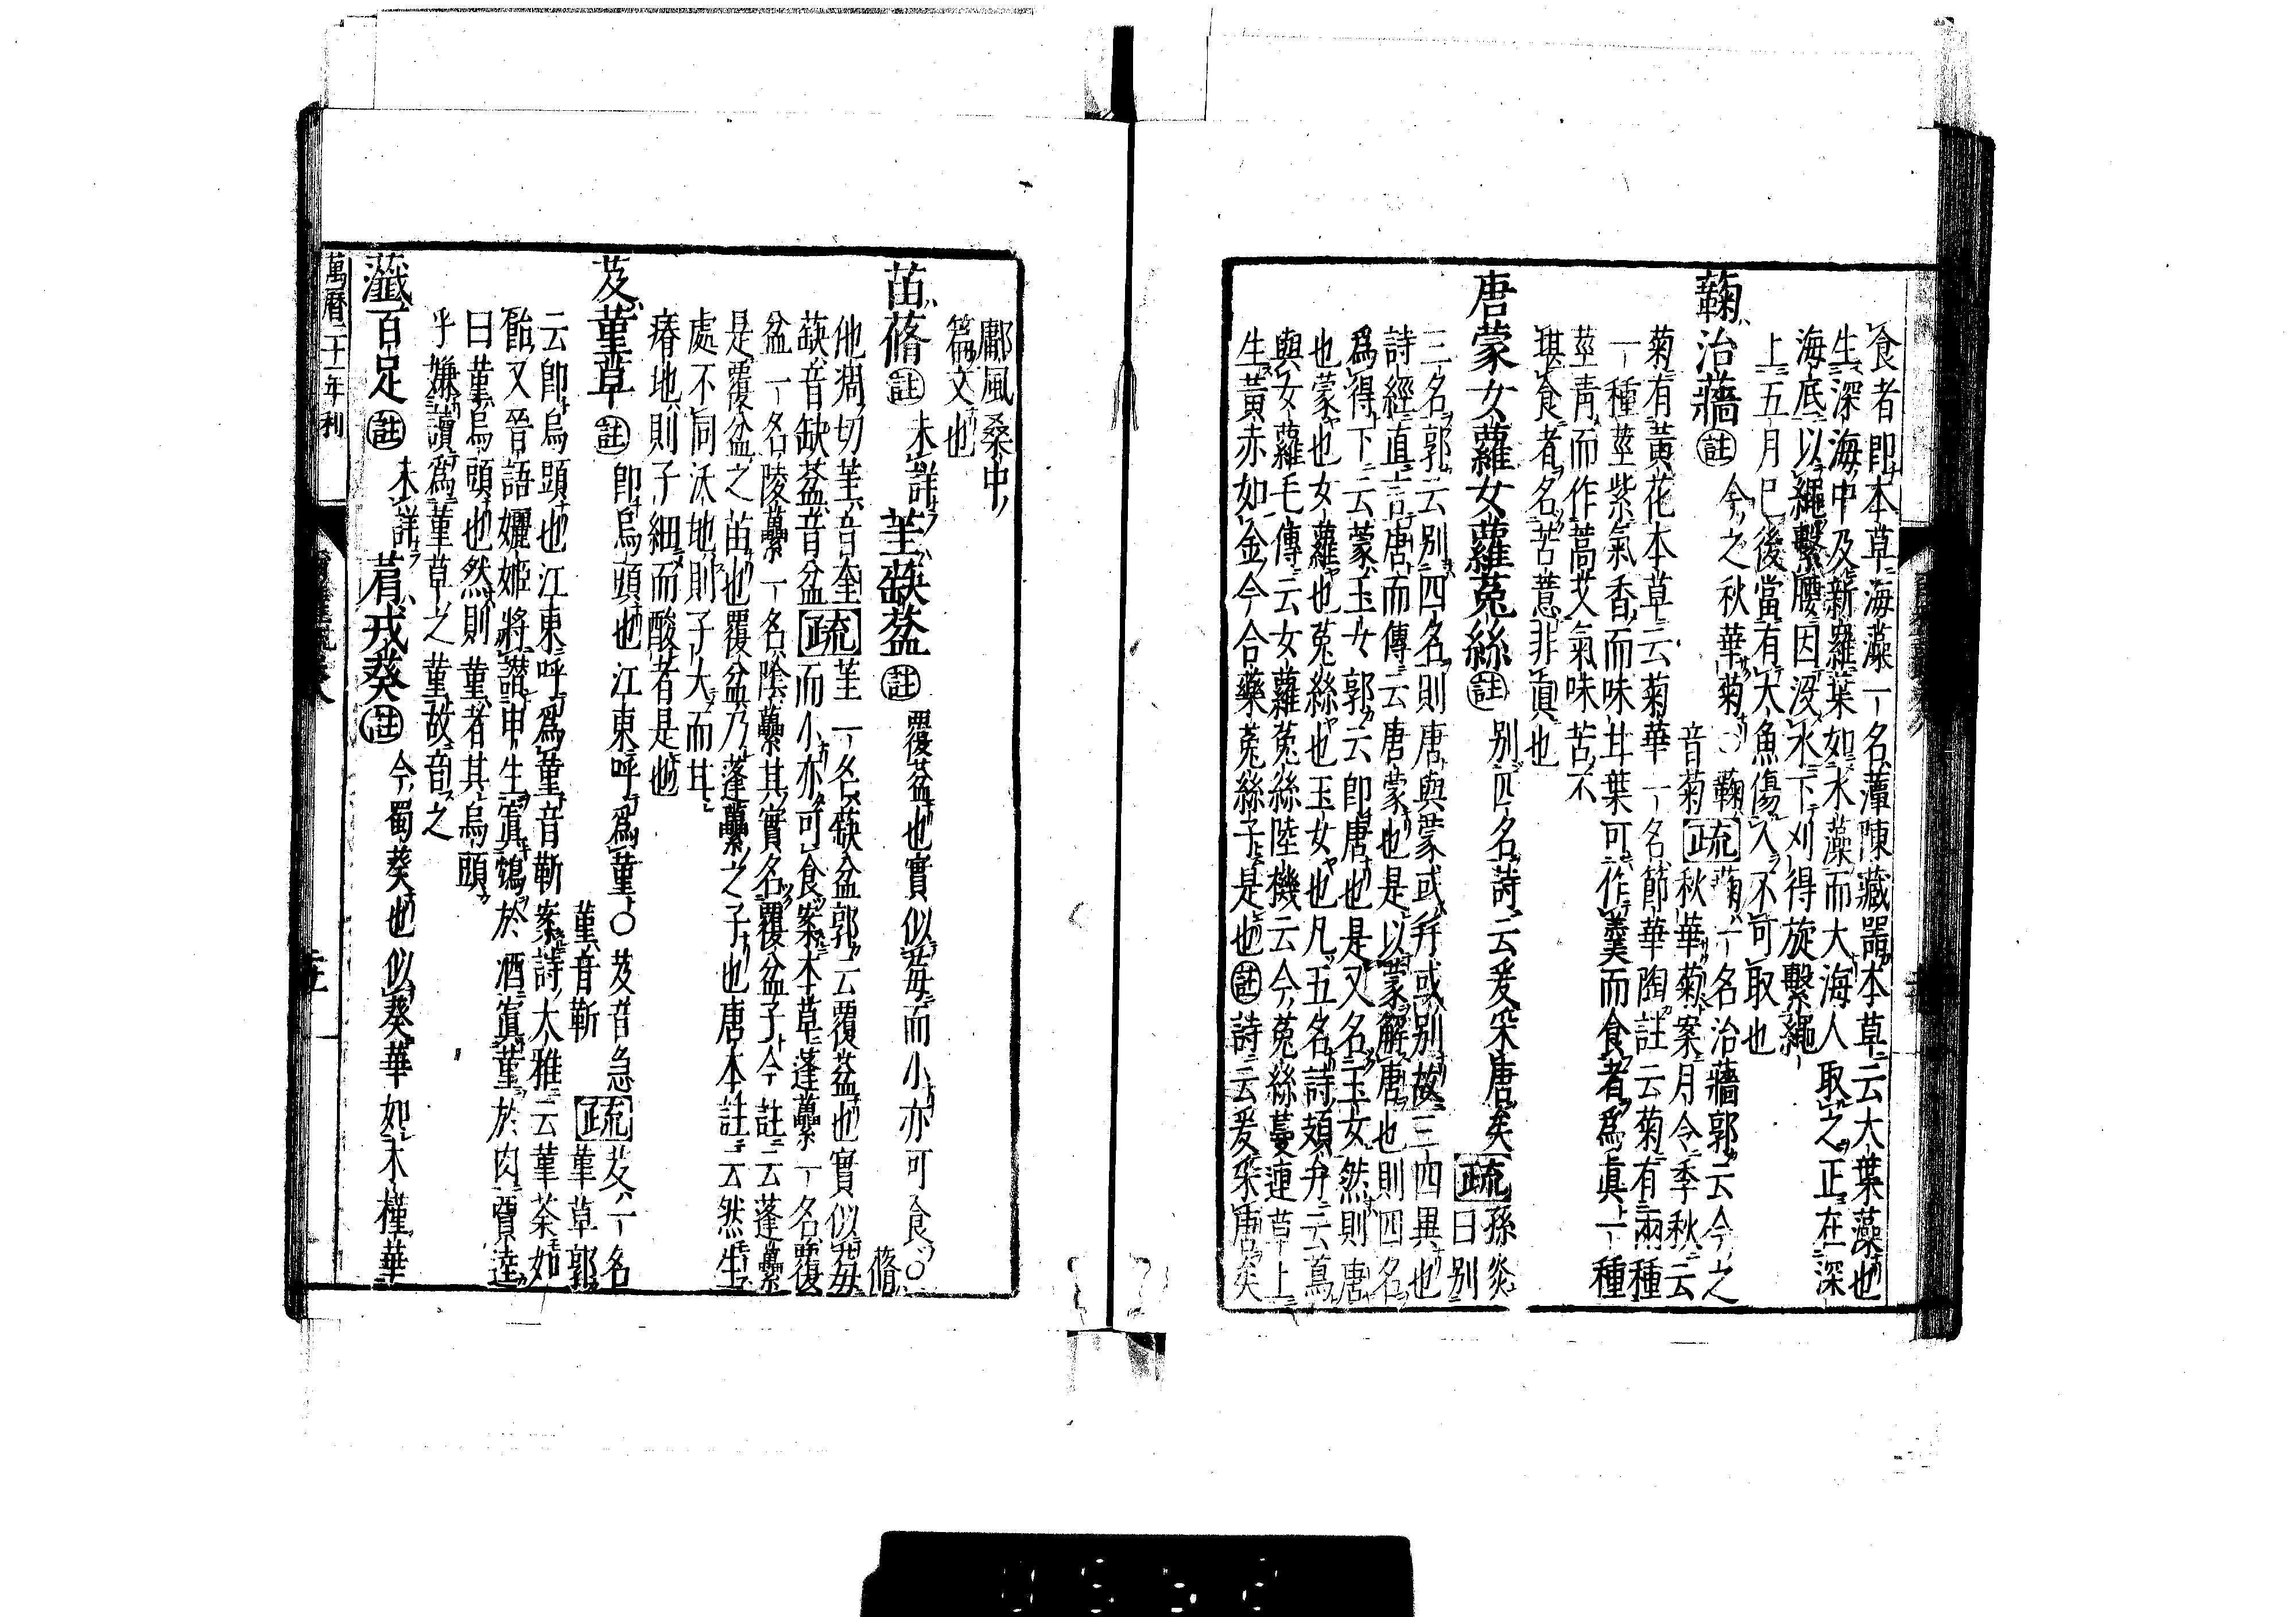 食者即本草海藻一名薚陳藏器本草云大葉藻也
生深海中及新羅葉如水藻而大海人取之正在深
海底以繩繫腰因沒水下刈得旋繫繩
上五月已後當有大魚傷人不可取也
蘜治蘠註今之秋華菊○蘜音菊疏蘜一名治蘠郭云今之秋華菊案月令季秋云
菊有黃花本草云菊華一名節華陶註云菊有兩種
一種莖紫氣香而味甘葉可作羹而食者爲眞一種
莖青而作蒿艾氣味苦不
堪食者名苦薏非眞也
唐蒙女蘿女蘿菟絲註別四名詩云爰采唐矣疏孫炎曰別
三名郭云別四名則唐與蒙或并或別故三四異也
詩經直言唐而傳云唐蒙也是以蒙解唐也則四名
爲得下云蒙玉女郭云即唐也是又名玉女然則唐
也蒙也女蘿也菟絲也玉女也凡五名詩頍弁云蔦
與女蘿毛傳云女蘿菟絲陸機云今菟絲蔓連草上
生黃赤如金今合藥菟絲子是也註詩云爰采唐矣
鄘風桑中
篇文也
苗蓨註未詳 茥蒛葐註覆盆也實似莓而小亦可食○蓨
他凋切茥音奎疏茥一名蒛葐郭云覆盆也實似莓
蒛音缺葐音盆而小亦可食案本草蓬蘽一名覆
盆一名陵蘽一名陰蘽其實名覆盆子今註云蓬蘽
是覆盆之苗也覆盆乃蓬蘽之子也唐本註云然生
處不同沃地則子大而甘
瘠地則子細而酸者是也
芨菫草註即烏頭也江東呼爲菫○芨音急菫音靳疏芨一名菫草郭
云即烏頭也江東呼爲菫音靳案詩大雅云菫荼如
飴又晉語孋姬將譖申生寘鴆於酒寘菫於肉賈逵
曰菫烏頭也然則菫者其烏頭
乎嫌讀爲菫草之菫故音之
虃百足註未詳 菺戎葵註今蜀葵也似葵華如木槿華
萬曆二十一年刊